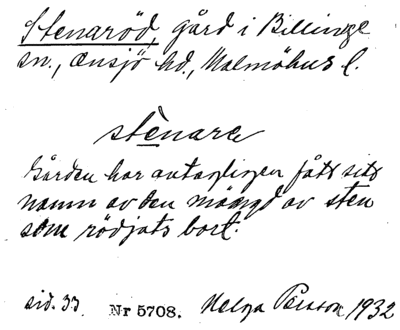 Stenaröd, gård i Billinge
sn., Onsjö hd., Malmöhus l.
stènare
Gården har antagligen fått sitt
namn av den mängd av sten
som rödjats bort.
sid. 33. Nr 5708. Helga Persson 1932